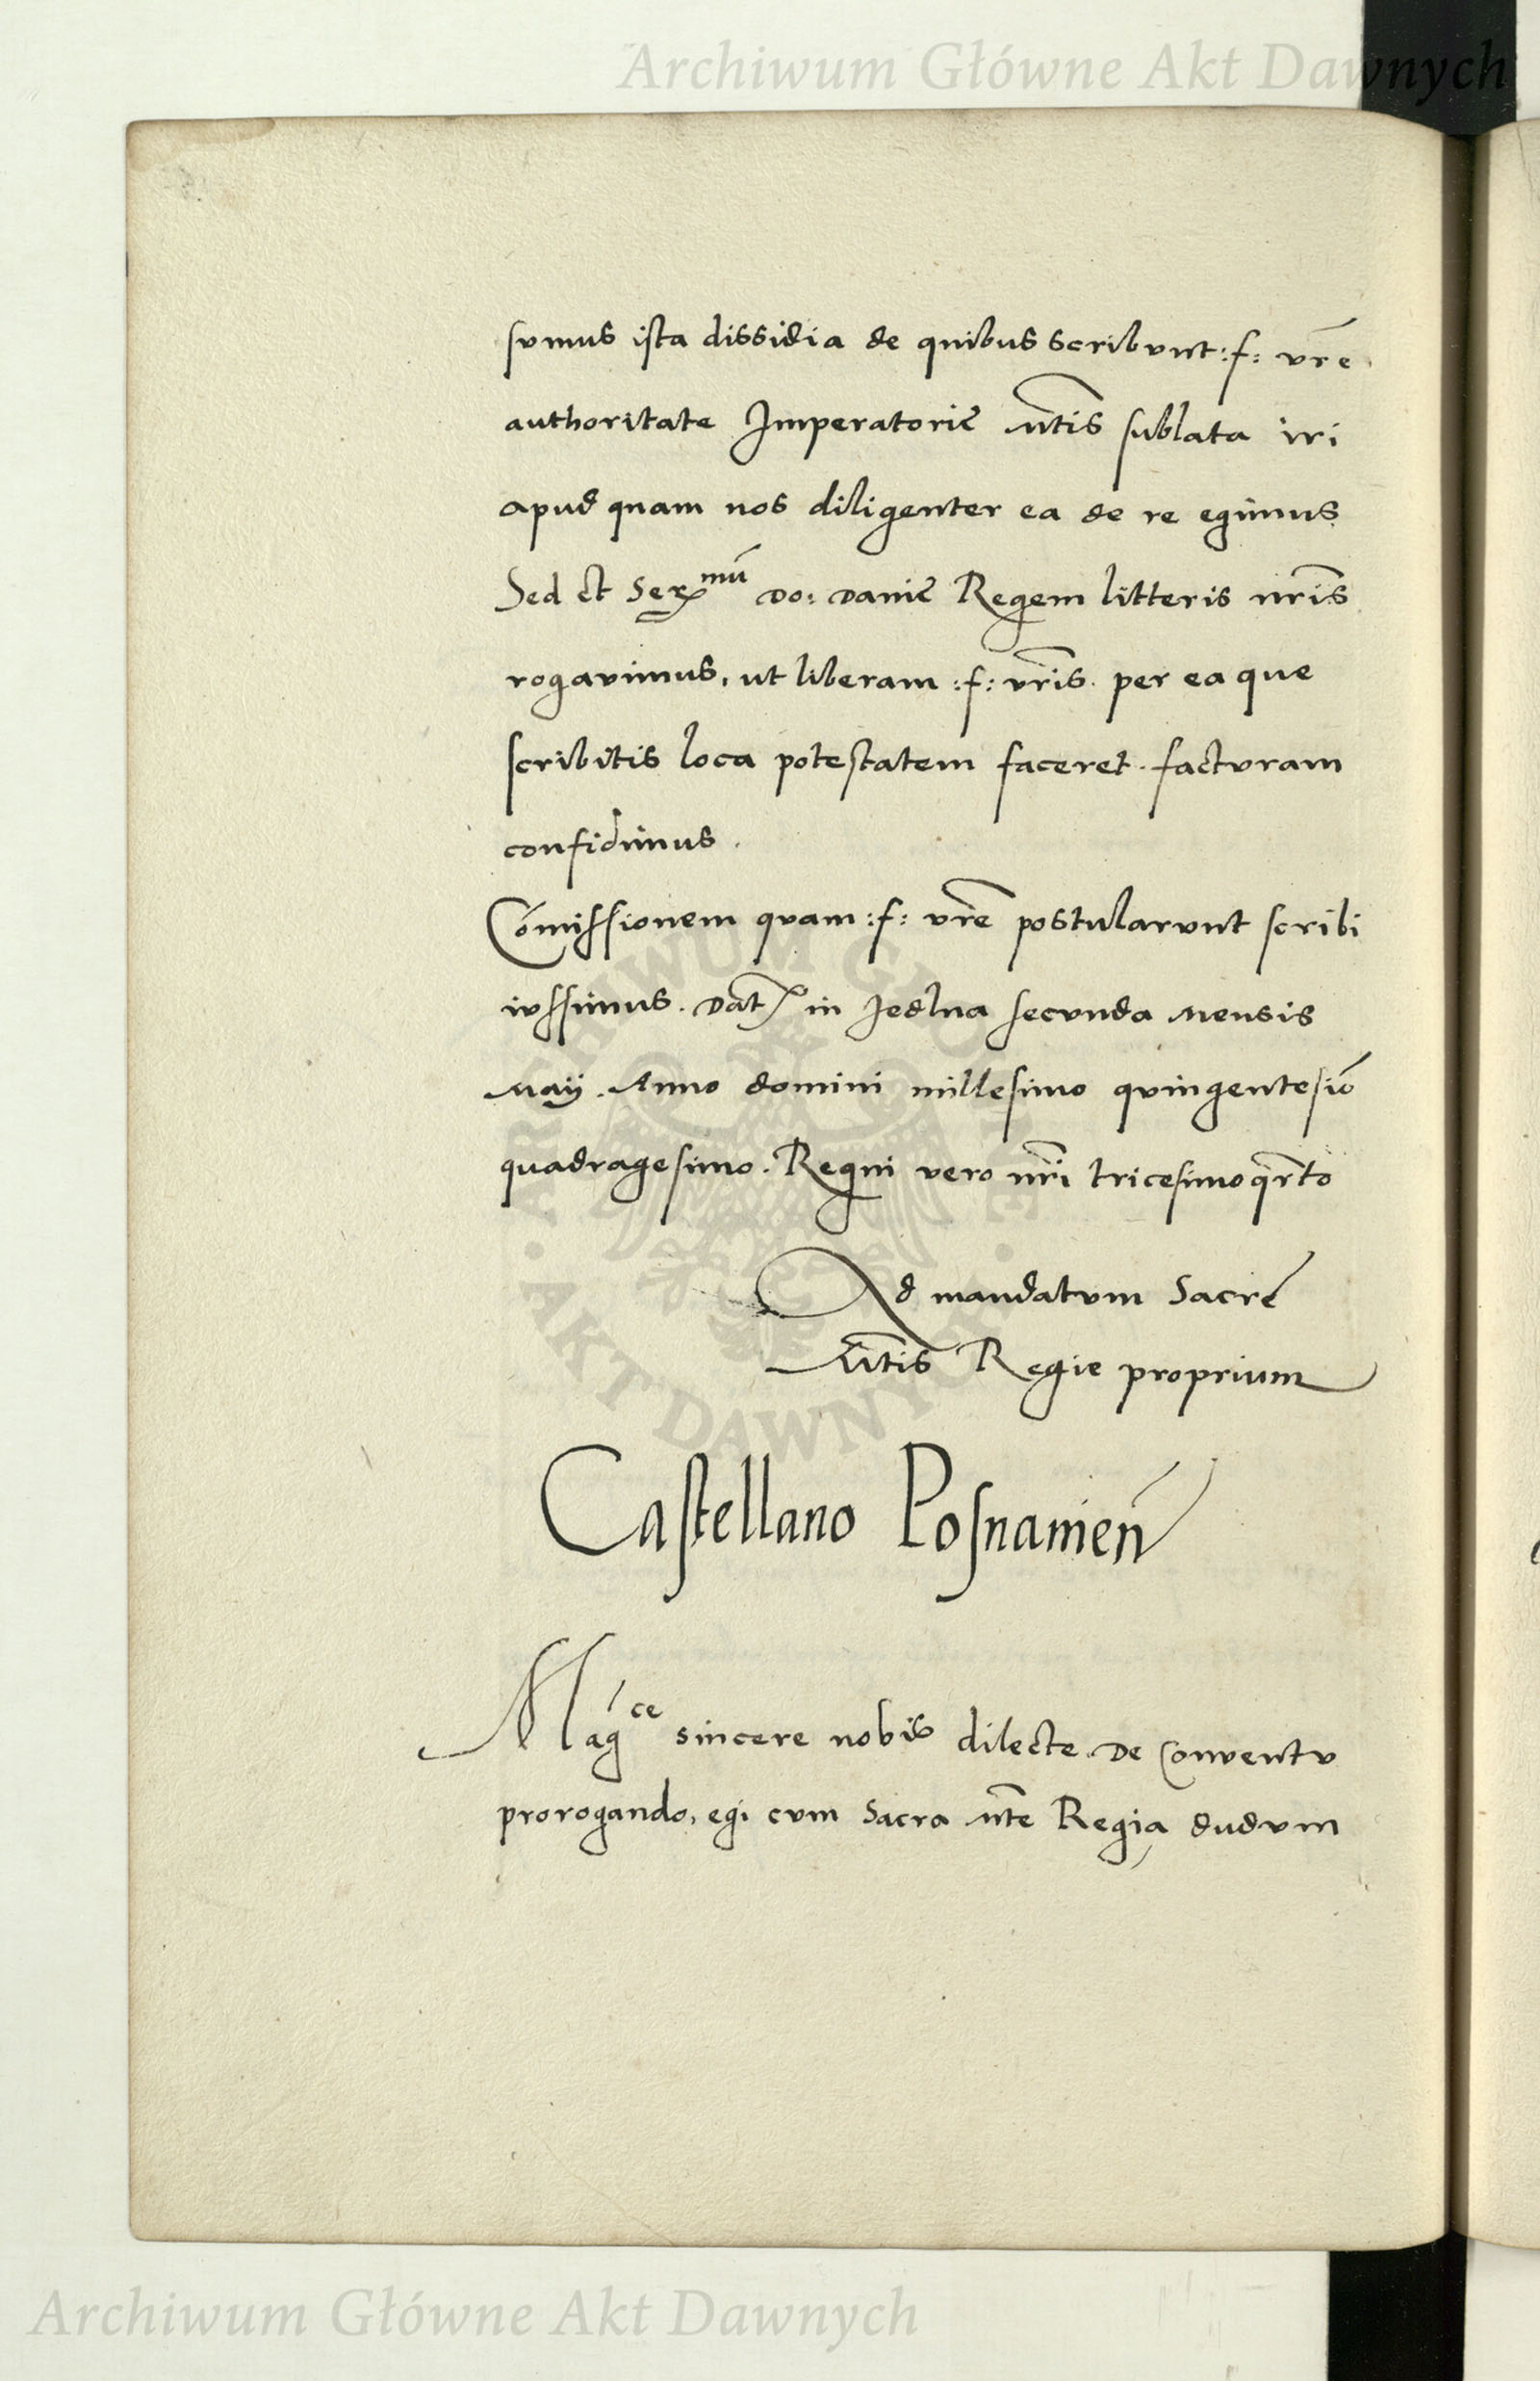 Archiwum Główne Akt Dawnych
sumus ista dissidia de quibus scribunt :f: vrē
authoritate Imperatoriē Mtis sublata iri
apud quam nos diligenter ea de re egimus
Sed et Serᵐᵘ̄ Do: Danie Regem litteris nr̄is
rogavimus, ut liberam :f: vr̄is. per ea que
scribitis loca potestatem faceret. facturam
confidimus.
Cōmissionem quam :f: vrē postularunt scribi
iussimus. Dat in Jedlna secunda Mensis
Maij. Anno domini millesimo quingentesiō
quadragesimo. Regni vero nr̄i tricesimoqr̄to
Ad mandatum Sacrē
Mtis Regie proprium
Castellano Posnanień
Magᶜᵉ sincere nobis dilecte. De Conventu
prorogando, egi cum Sacra Mte Regia dudum
ARCHIWUM GŁÓWNE • AKT DAWNYCH •
Archiwum Główne Akt Dawnych